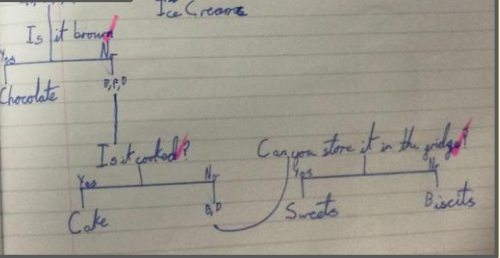 Ice Creams
Is it brown
Yes No
Chocolate
Is it cooked?
Yes No
Cake
B, D
Can you store it in the fridge?
Yes No
Sweets Biscuits